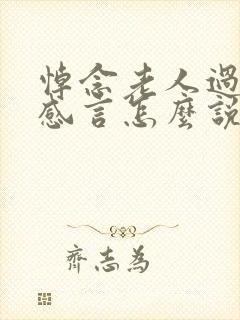 悼念老人過
感言怎麼説
齊志為